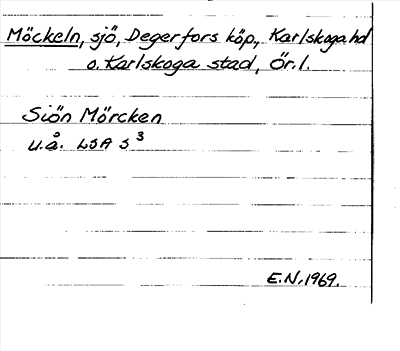 Möckeln, sjö, Degerfors köp., Karlskoga hd
o. Karlskoga stad, Ör. l.
Siön Mörcken
u.å. LSA S 3
E.N. 1969.